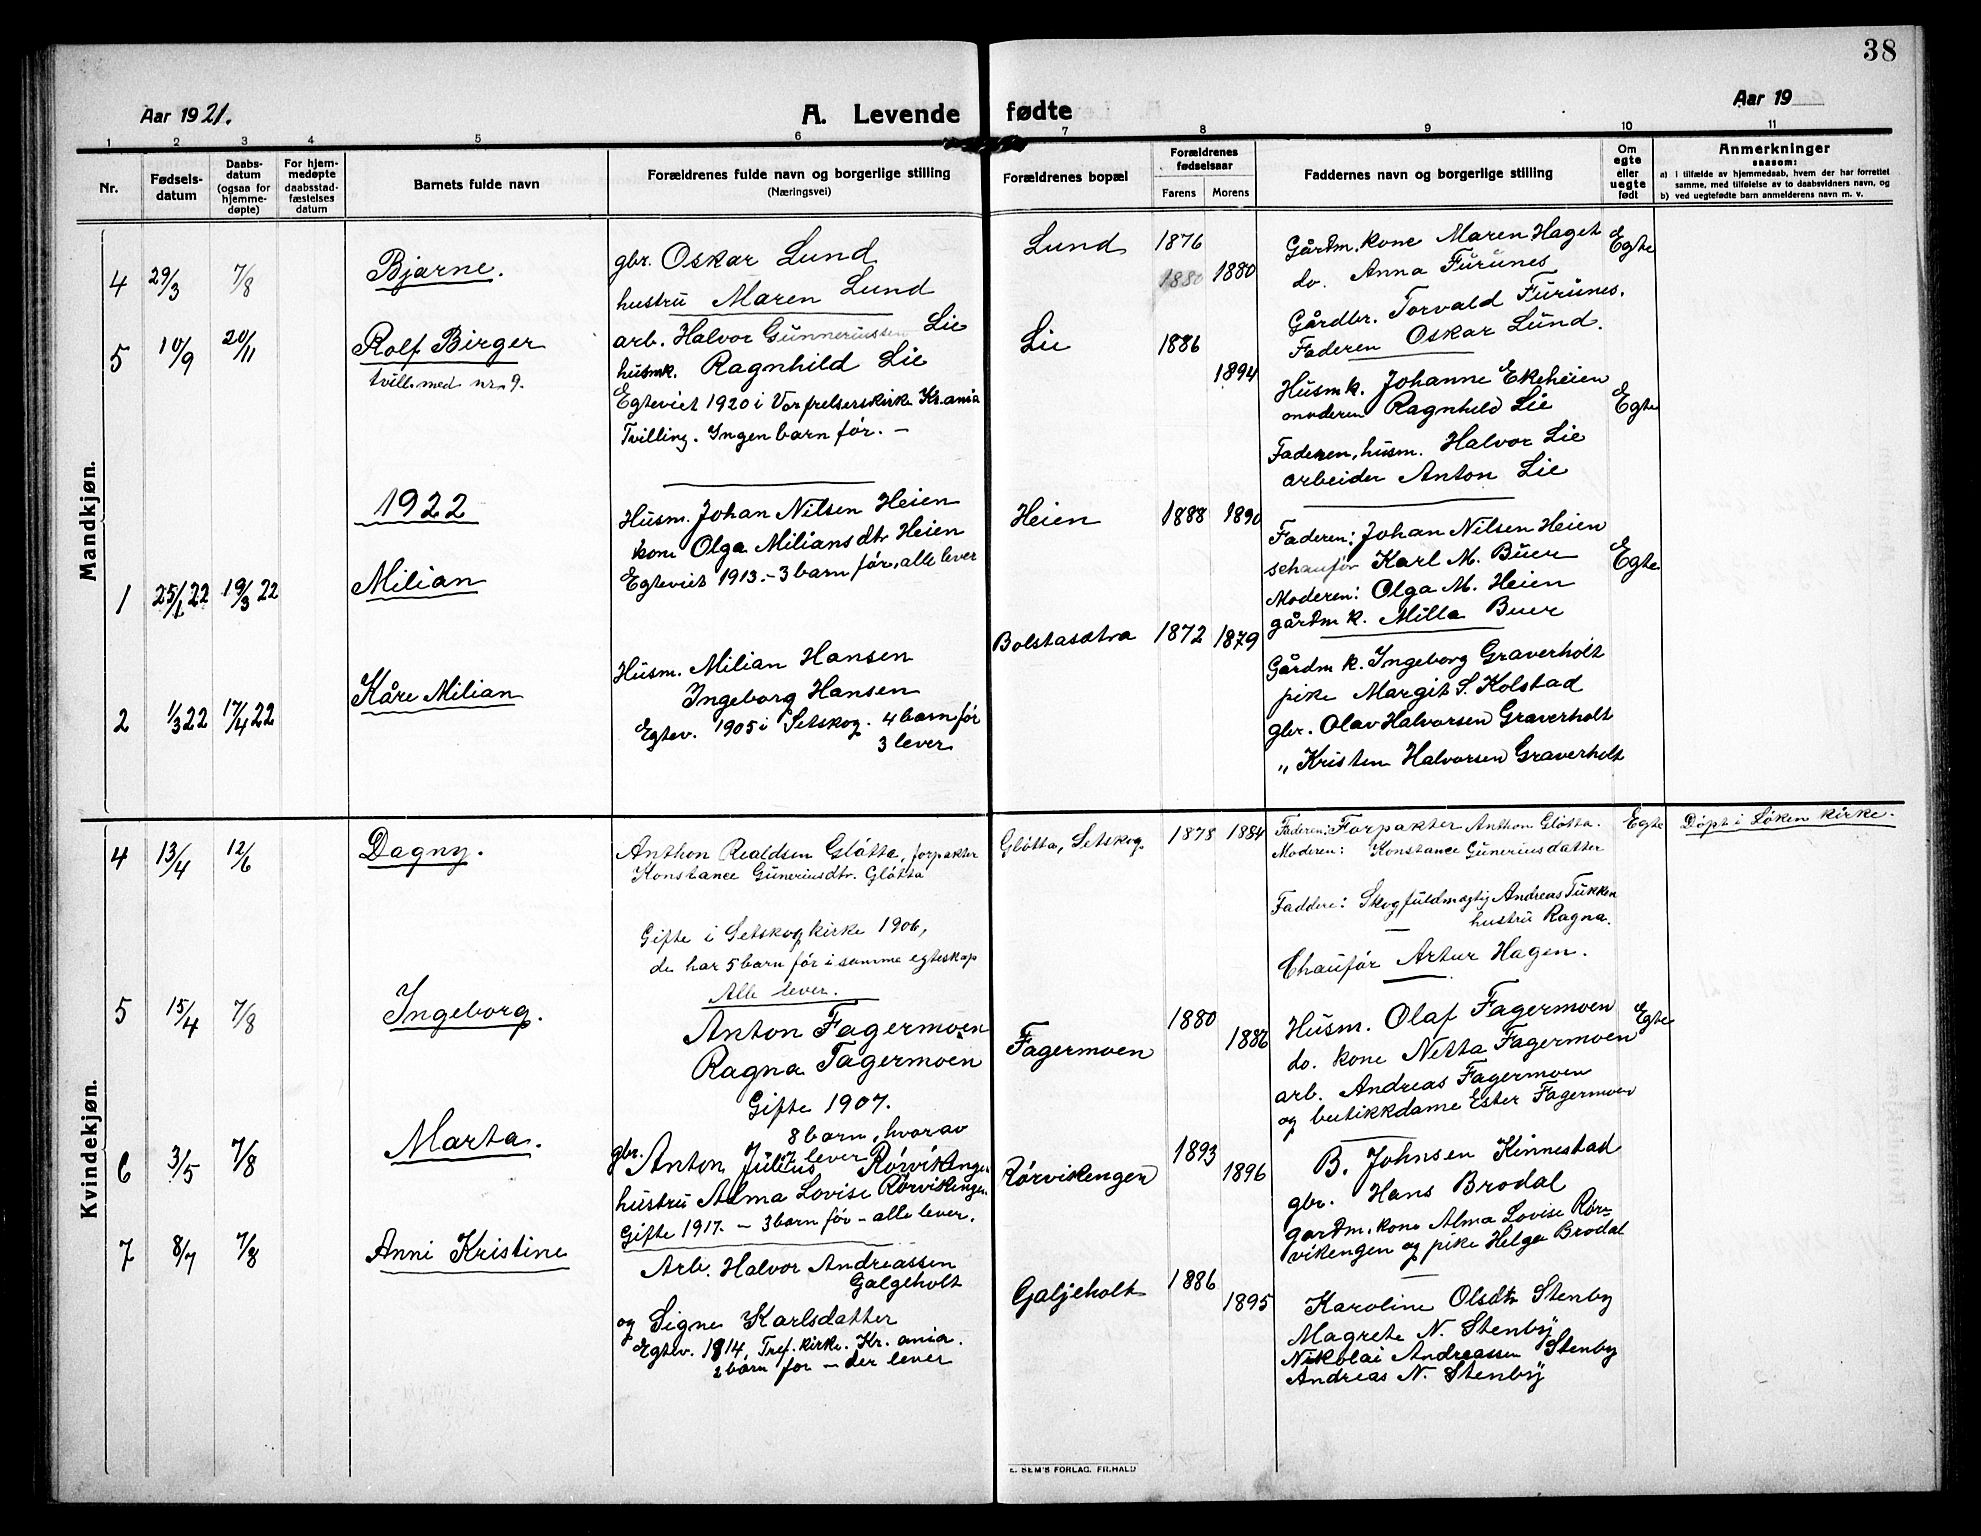 38
Aar 1921.
A. Levende fødte
Aar 19
1 2 3 4 5 6 7 8 9 10 11
Nr.
Fødsels-
datum
Daabs-
datum
(ogsaa for
hjemme-
døpte)
For hjem-
medøpte
daabsstad-
fæstelses
datum
Barnets fulde navn
Forældrenes fulde navn og borgerlige stilling
(Næringsvei)
Forældrenes bopæl
Forældrenes
fødselsaar
Farens Morens
Faddernes navn og borgerlige stilling
Om
egte
eller
uegte
født
Anmerkninger
saasom:
a) i tilfælde av hjemmedaab, hvem der har forrettet
samme, med tilføielse av to daabsvidners navn, og
b) ved uegtefødte barn anmelderens navn m. v.
Mandkjøn.
4 29/3 7/8 Bjarne.
gbr. Oskar Lund
hustru Maren Lund
Lund 1876
1880 1880
Gårdm. kone Maren Haget
do. Anna Furunes
Gårdbr. Torvald Furunes.
Faderen Oskar Lund.
Egte
5 10/9 20/11 Rolf Birger
tvill. med nr. 9.
arb. Halvor Gunneriussen Lie
husmk. Ragnhild Lie
Egteviet 1920 i Vor frelserskirke Kr.ania
Tvilling. Ingen barn før. –
Lie 1886
1894
Husmk. Johanne Ekeheien
moderen Ragnhild Lie
Faderen, husm. Halvor Lie
arbeider Anton Lie
Egte
1922
1 25/1 22 19/3 22 Milian
Husm. Johan Nilsen Heien
kone Olga Miliansdtr Heien
Egteviet 1913. – 3 barn før, alle lever
Heien 1888 1890
Faderen: Johan Nilsen Heien
schaufør Karl M. Buer
Moderen: Olga M. Heien
gårdm k. Milla Buer
Egte
2 1/3 22 17/4 22 Kåre Milian
Husm. Milian Hansen
Ingeborg Hansen
Egtev. 1905 i Setskog. 4 barn før
3 lever
Bolstasætra 1872 1879
Gårdm k. Ingeborg Graverholt
pike Margit S. Kolstad
gbr. Olav Halvorsen Graverholt
" Kristen Halvorsen Graverholt
Kvindekjøn.
4 13/4 12/6 Dagny.
Anthon Realdsen Gløtta, forpakter
Konstance Guneriusdtr. Gløtta
Gifte i Setskog kirke 1906,
de har 5 barn før i samme egteskap
Alle lever.
Gløtta, Setskog. 1878 1884
Faderen: Forpakter Anthon Gløtta.
Moderen: Konstance Guneriusdatter
Faddere: Skogfuldmægtig Andreas Tukken
hustru Ragna.
Chaufør Artur Hagen.
Egte
Døpt i Løken kirke.
5 15/4 7/8 Ingeborg.
Anton Fagermoen
Ragna Fagermoen
Gifte 1907.
8 barn, hvorav
7 lever
Fagermoen 1880
1886
Husm. Olaf Fagermoen
do. kone Netta Fagermoen
arb. Andreas Fagermoen
og butikkdame Ester Fagermoen
Egte
6 3/5 7/8 Marta.
gbr. Anton Julius Rørvikengen
hustru Alma Lovise Rørvikengen.
Gifte 1917. – 3 barn før – alle lever.
Rørvikengen 1893
1896
B. Johnsen Kinnestad
gbr. Hans Brodal
gardm. kone Alma Lovise Rør-
vikengen og pike Helga Brodal
7 8/7 7/8 Anni Kristine
Arb. Halvor Andreassen
Galgeholt
og Signe Karlsdatter
Egtev. 1914 Tref. kirke. Kr. ania.
2 barn før – der lever
Galjeholt 1886
1895
Karoline Olsdtr Stenby
Magrete N. Stenby
Nikolai Andreassen Stenby
Andreas N. Stenby
E. SEM'S FORLAG. FR.HALD